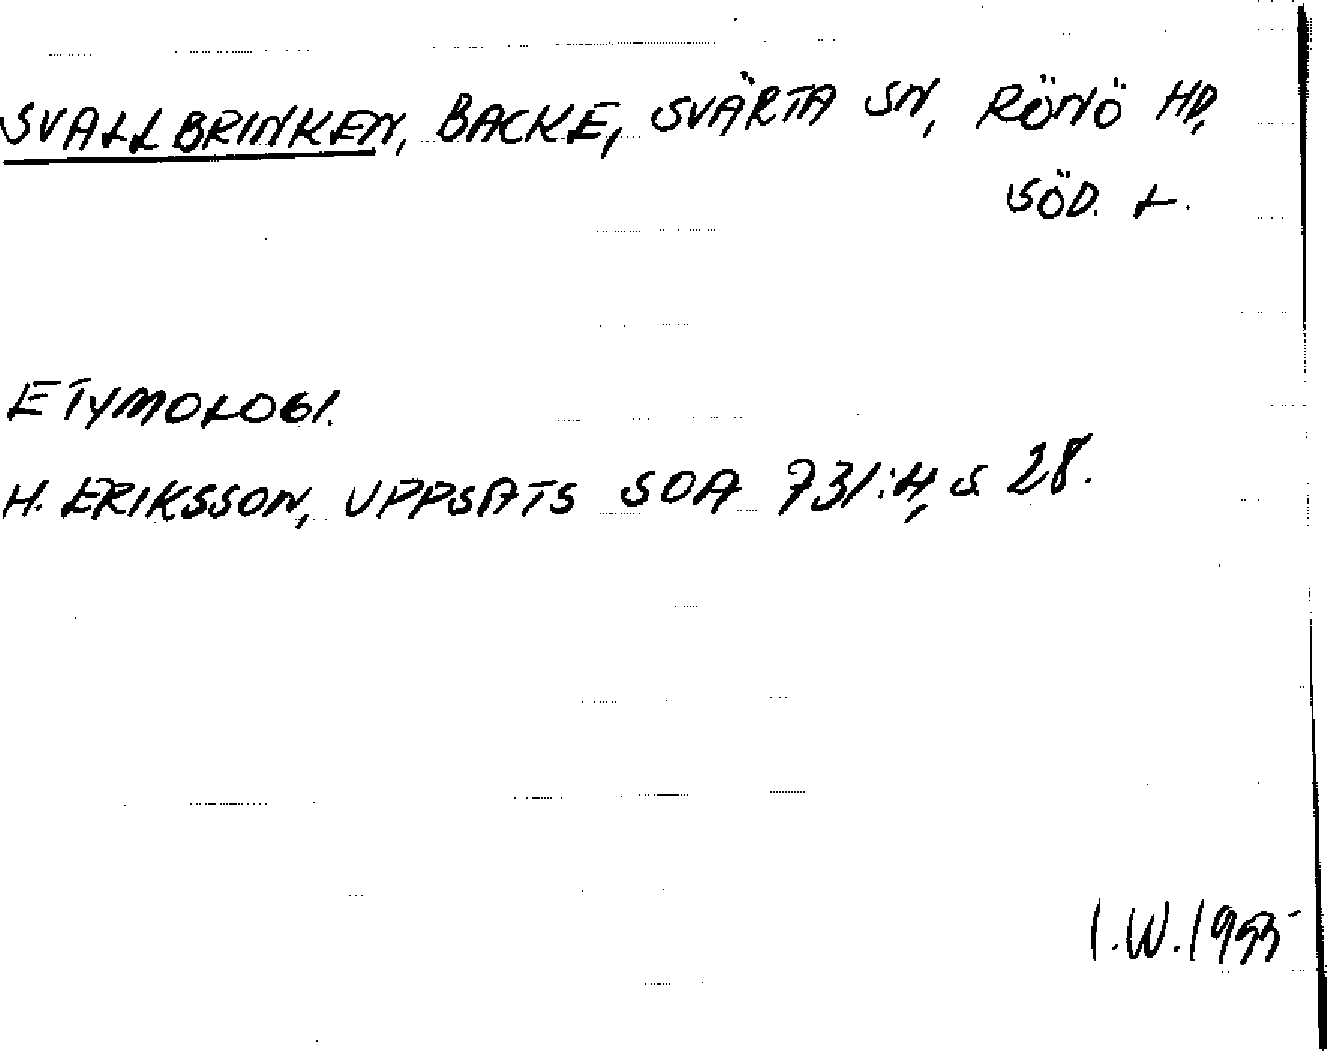 SVALLBRINKEN, BACKE, SVÄRTA SN, RÖNÖ HD,
SÖD. L.
ETYMOLOGI.
H. ERIKSSON, UPPSATS SOA 731:4, S 28.
I.W. 1955